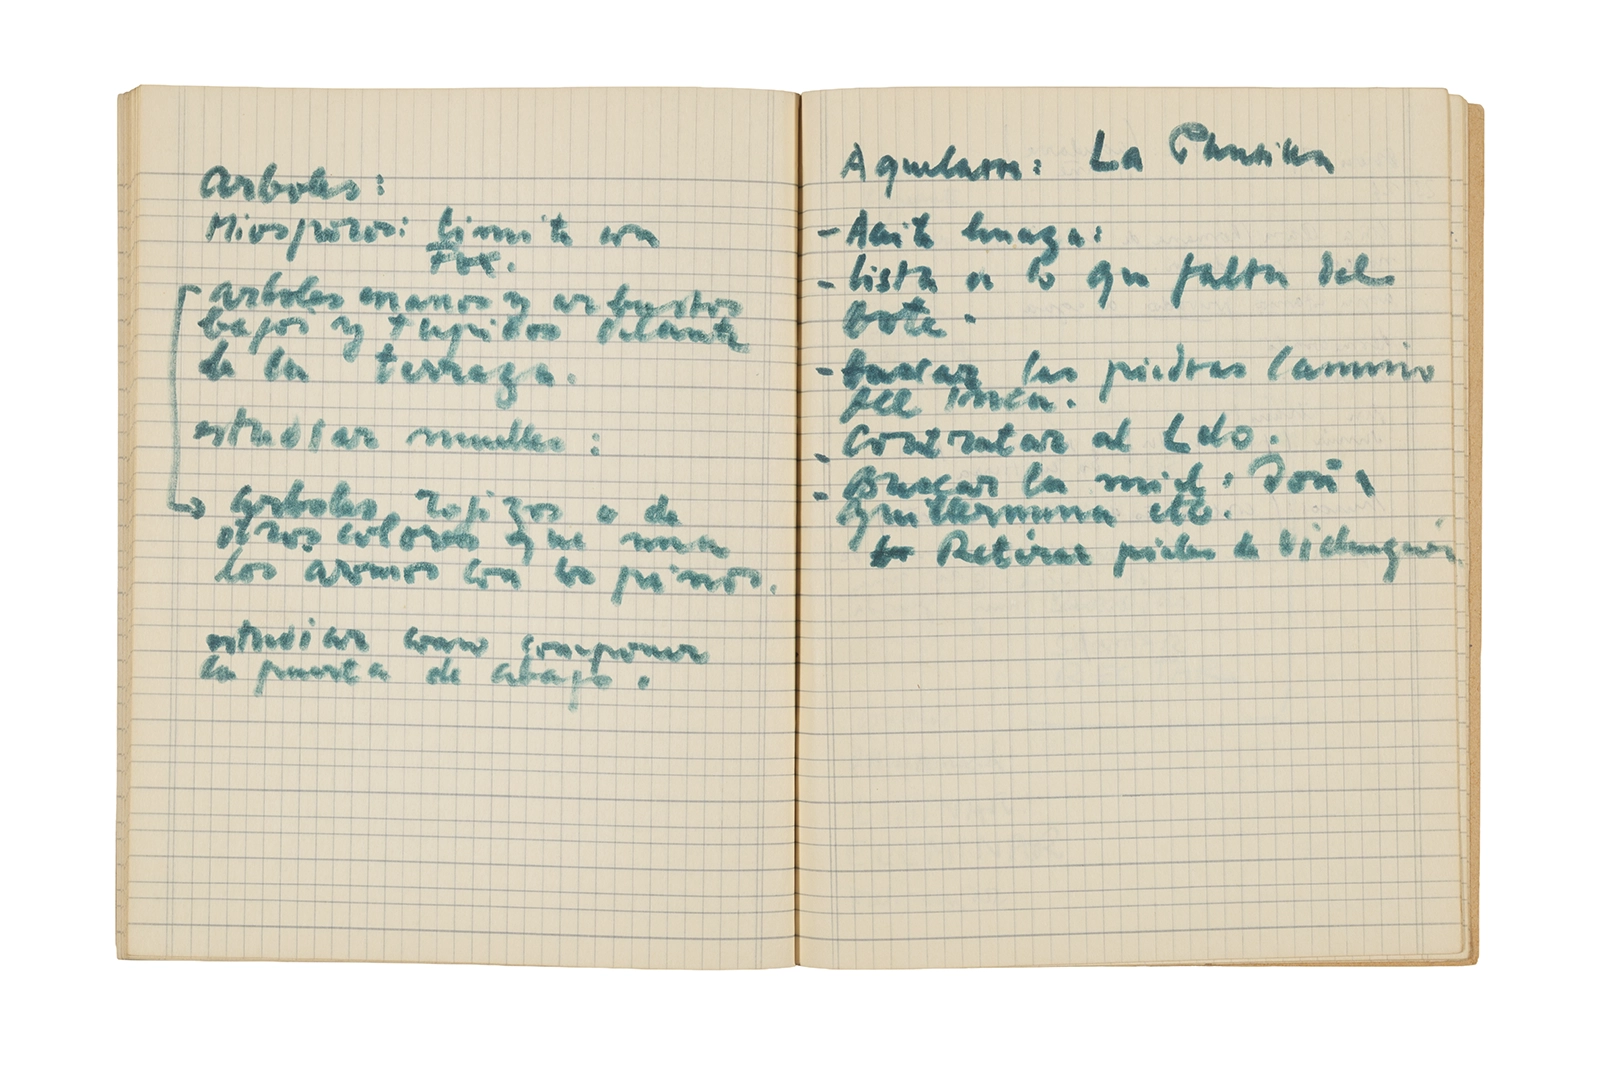 arboles:
Miosporos: limite con
Fox.
arboles enanos y arbustos
bajos y tupidos delante
de la terraza.
estudiar muelle:
arboles rojizos o de
otros colores que unan
los aromos con los pinos.
estudiar como componer
la puerta de abajo.
Aquelarre: La
- Aceite linaza:
- lista de lo que falta del
bote.
- buscar las piedras Camino
del Inca.
- Contratar al Lalo.
- Buscar la miel: Doña
Guillermina etc.
Retirar pieles de Vichuquén